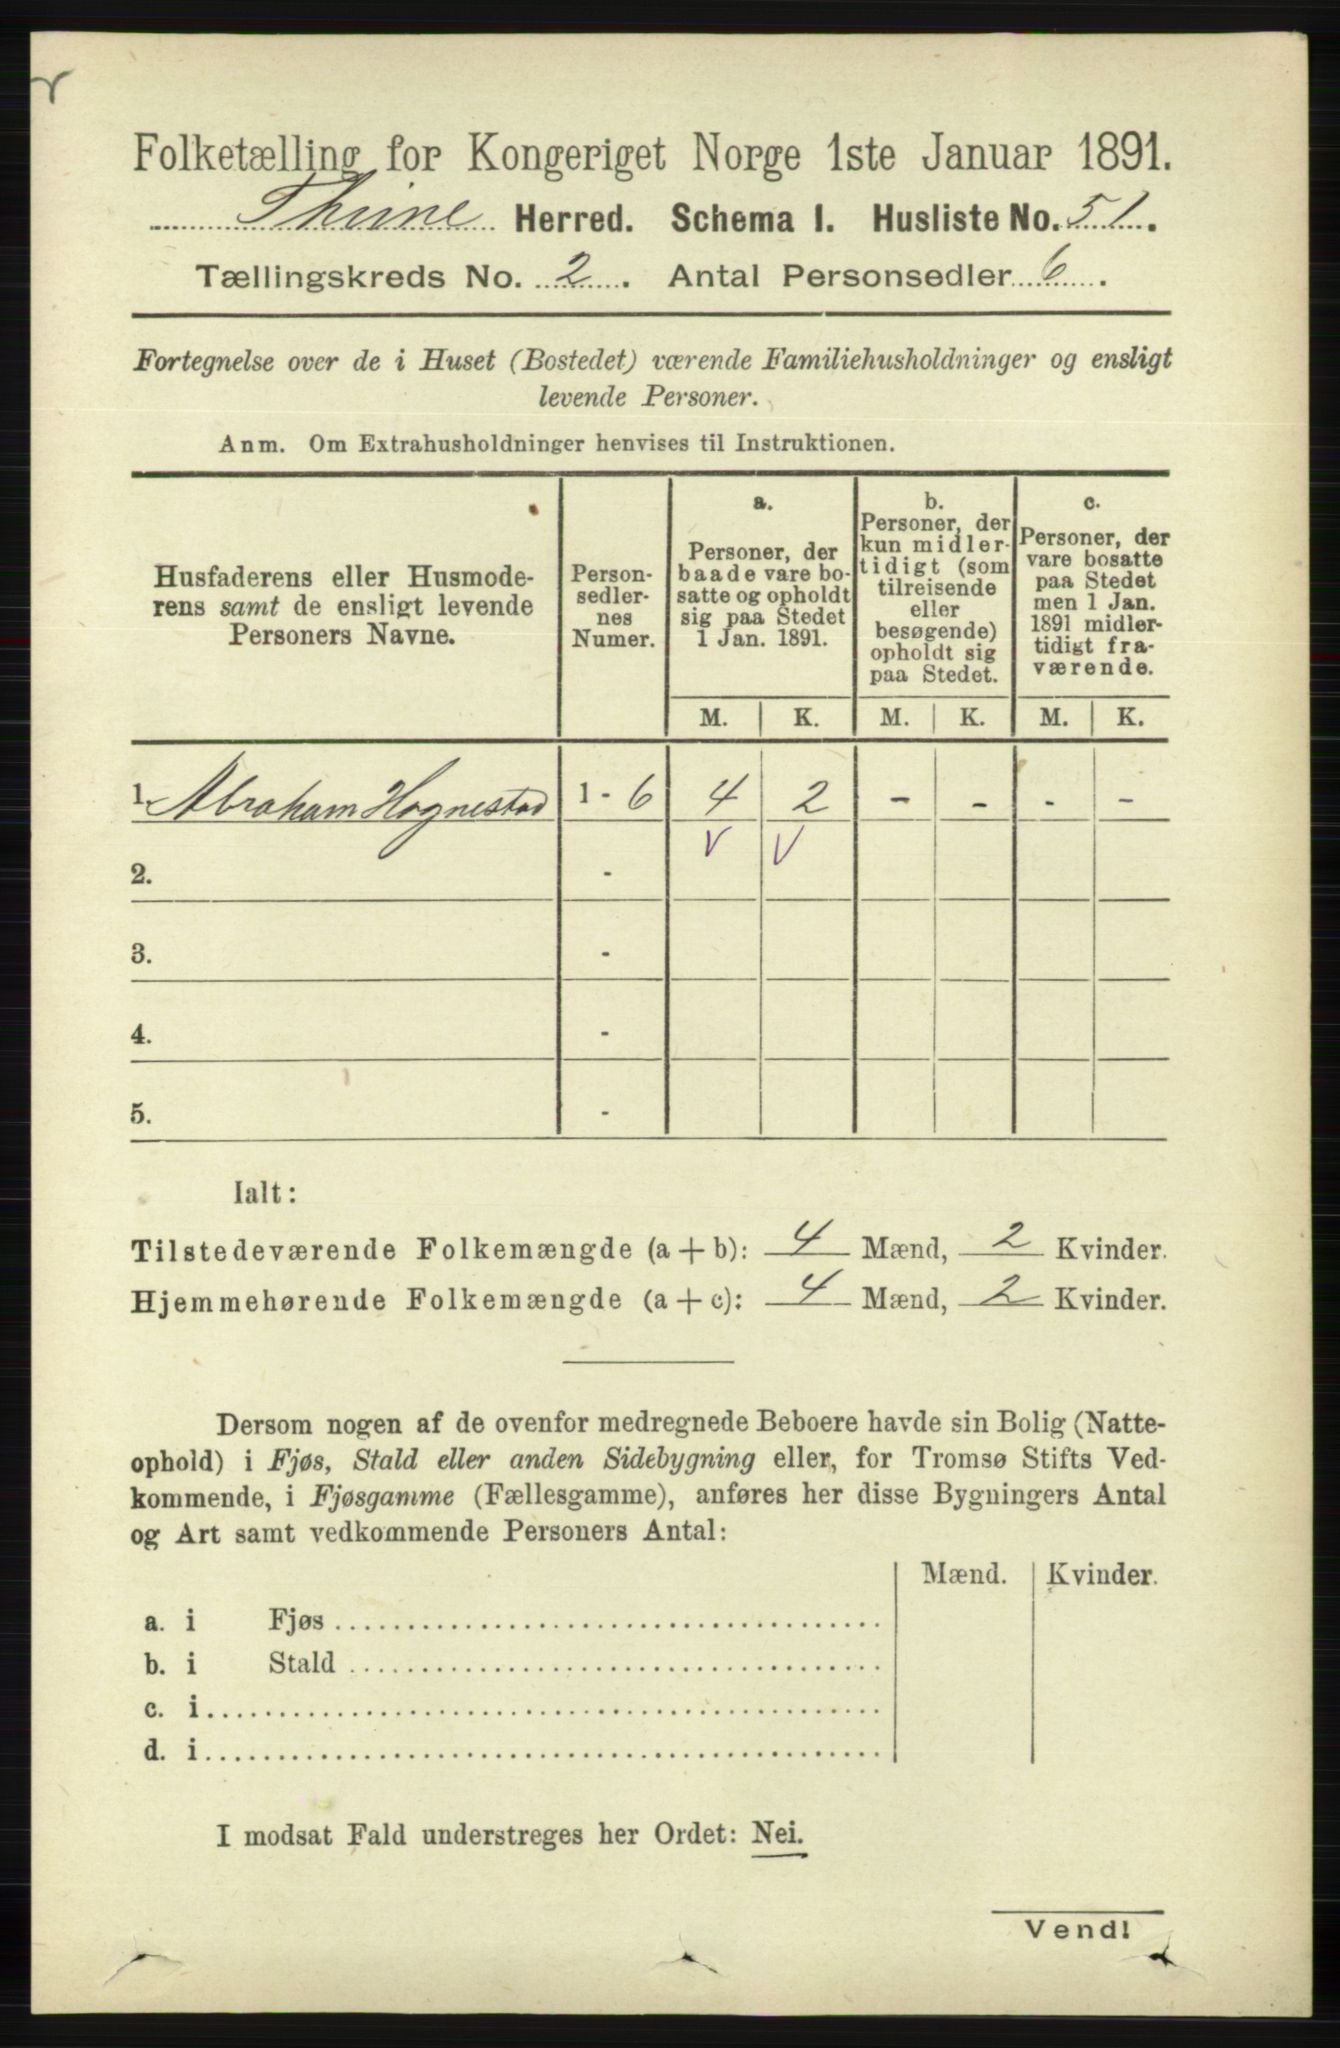 Folketælling for Kongeriget Norge 1ste Januar 1891.
Thime Herred. Schema 1. Husliste No. 51.
Tællingskreds No. 2. Antal Personsedler 6.
Fortegnelse over de i Huset (Bostedet) værende Familiehusholdninger og ensligt
levende Personer.
Anm. Om Extrahusholdninger henvises til Instruktionen.
Husfaderens eller Husmode-
rens samt de ensligt levende
Personers Navne.
Person-
sedler-
nes
Numer.
a.
Personer, der
baade vare bo-
satte og opholdt
sig paa Stedet
1 Jan. 1891.
b.
Personer, der
kun midler-
tidigt (som
tilreisende
eller
besøgende)
opholdt sig
paa Stedet.
c.
Personer, der
vare bosatte
paa Stedet
men 1 Jan.
1891 midler-
tidigt fra-
værende.
M. K. M. K. M. K.
1. Abraham Hognestad 1 - 6 4 2 - - - -
V V
2. -
3. -
4. -
5. -
Ialt:
Tilstedeværende Folkemængde (a + b): 4 Mænd, 2 Kvinder.
Hjemmehørende Folkemængde (a + c): 4 Mænd, 2 Kvinder.
Dersom nogen af de ovenfor medregnede Beboere havde sin Bolig (Natte-
ophold) i Fjøs, Stald eller anden Sidebygning eller, for Tromsø Stifts Ved-
kommende, i Fjøsgamme (Fællesgamme), anføres her disse Bygningers Antal
og Art samt vedkommende Personers Antal:
Mænd. Kvinder.
a. i Fjøs
b. i Stald
c. i
d. i
I modsat Fald understreges her Ordet: Nei.
Vend!